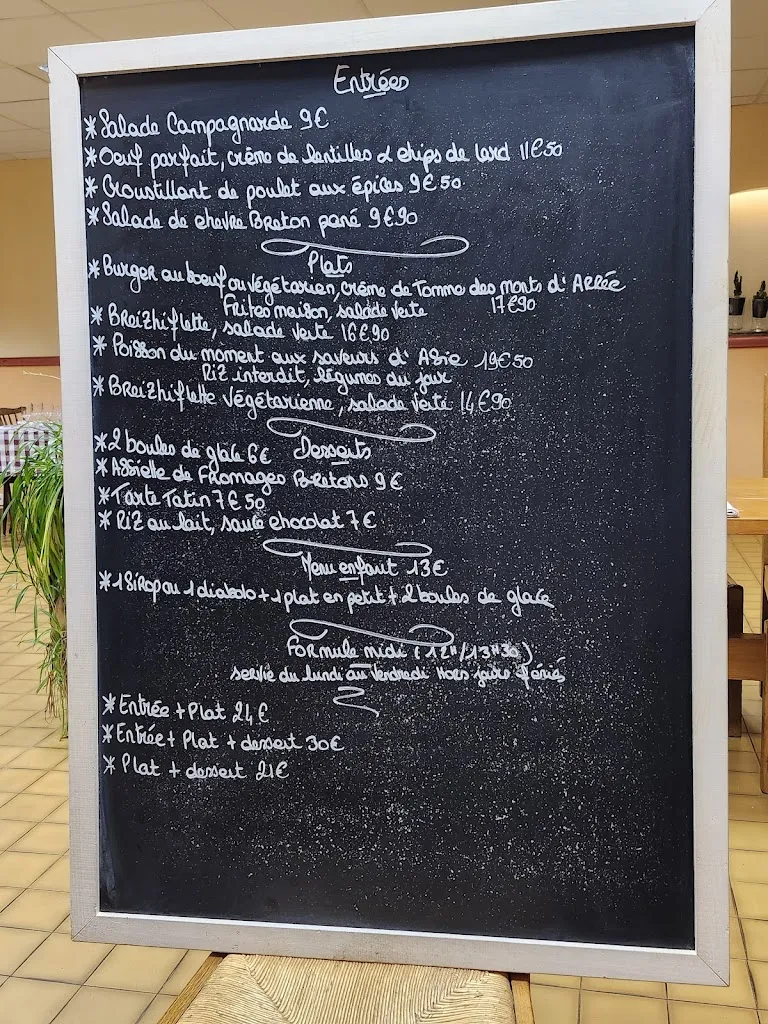 Entrées
*Salade Campagnarde 9€
*Oeuf parfait, crème de lentilles & chips de lard 11€50
*Croustillant de poulet aux épices 9€50
*Salade de chèvre Breton pané 9€90
Plats
*Burger au boeuf ou végétarien, crème de Tomme des monts d'Arrée
Frites maison, salade verte 17€90
*Breizhiflette, salade verte 16€90
*Poisson du moment aux saveurs d'Asie 19€50
Riz interdit, légumes du jour
*Breizhiflette végétarienne, salade verte 14€90
*2 boules de glace 6€ Desserts
*Assiette de Fromages Bretons 9€
*Tarte Tatin 7€50
*Riz au lait, sauce chocolat 7€
Menu enfant 13€
*1 Sirop ou 1 diabolo + 1 plat en petit + 2 boules de glace
Formule midi (12H/13H30)
servie du lundi au Vendredi Hors jours fériés
*Entrée + Plat 24€
*Entrée + Plat + dessert 30€
*Plat + dessert 21€